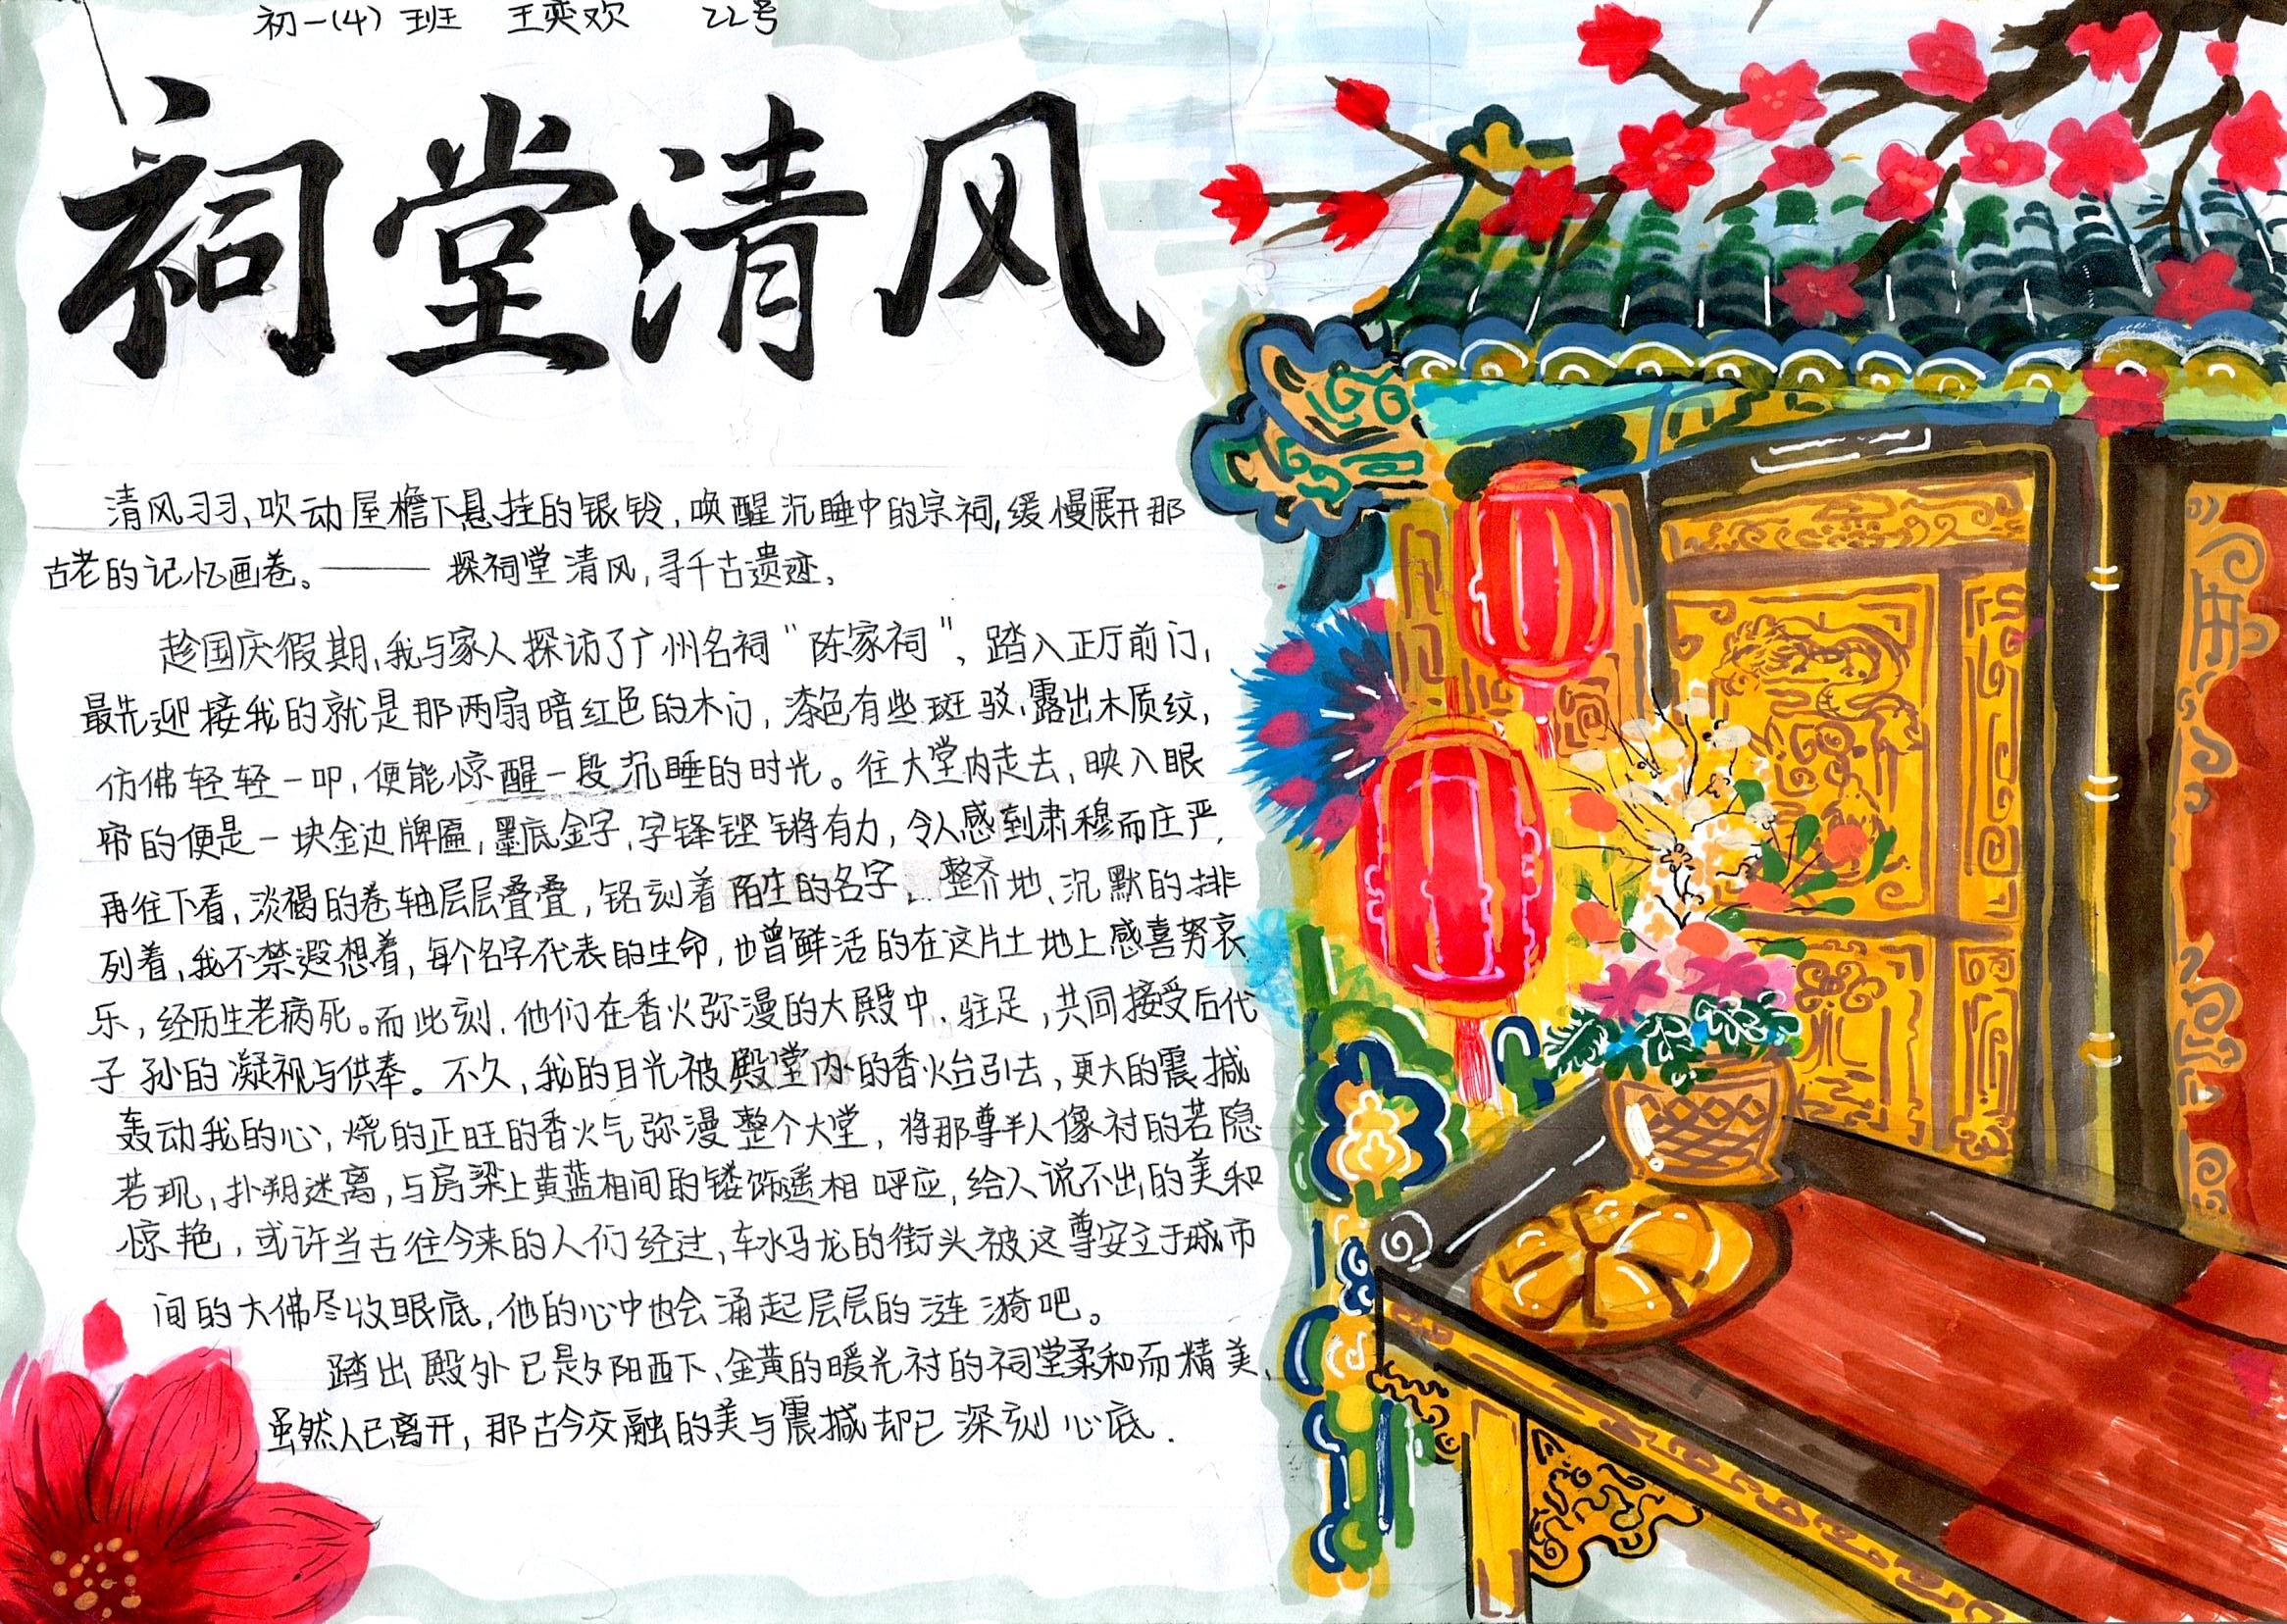 初一(4)班 王奕欢 22号
祠堂清风
清风习习,吹动屋檐下悬挂的银铃,唤醒沉睡中的宗祠,缓慢展开那
古老的记忆画卷。—— 探祠堂清风,寻千古遗迹。
趁国庆假期,我与家人探访了广州名祠"陈家祠",踏入正厅前门,
最先迎接我的就是那两扇暗红色的木门,漆色有些斑驳,露出木质纹,
仿佛轻轻一叩,便能惊醒一段沉睡的时光。往大堂内走去,映入眼
帘的便是一块金边牌匾,墨底金字,字铎铿锵有力,令人感到肃穆而庄严,
再往下看,淡褐的卷轴层层叠叠,铭刻着陌生的名字,整齐地、沉默的排
列着,我不禁遐想着,每个名字代表的生命,也曾鲜活的在这片土地上感喜努哀
乐,经历生老病死。而此刻,他们在香火弥漫的大殿中,驻足,共同接受后代
子孙的凝视与供奉。不久,我的目光被殿堂内的香火台引去,更大的震撼
轰动我的心,烧的正旺的香火气弥漫整个大堂,将那尊半人像衬的若隐
若现,扑朔迷离,与房梁上黄蓝相间的镂饰遥相呼应,给人说不出的美和
惊艳,或许当古往今来的人们经过,车水马龙的街头被这尊安立于城市
间的大佛尽收眼底,他的心中也会涌起层层的涟漪吧。
踏出殿外已是夕阳西下、金黄的暖光衬的祠堂柔和而精美、
虽然人已离开,那古今交融的美与震撼却已深刻心底.